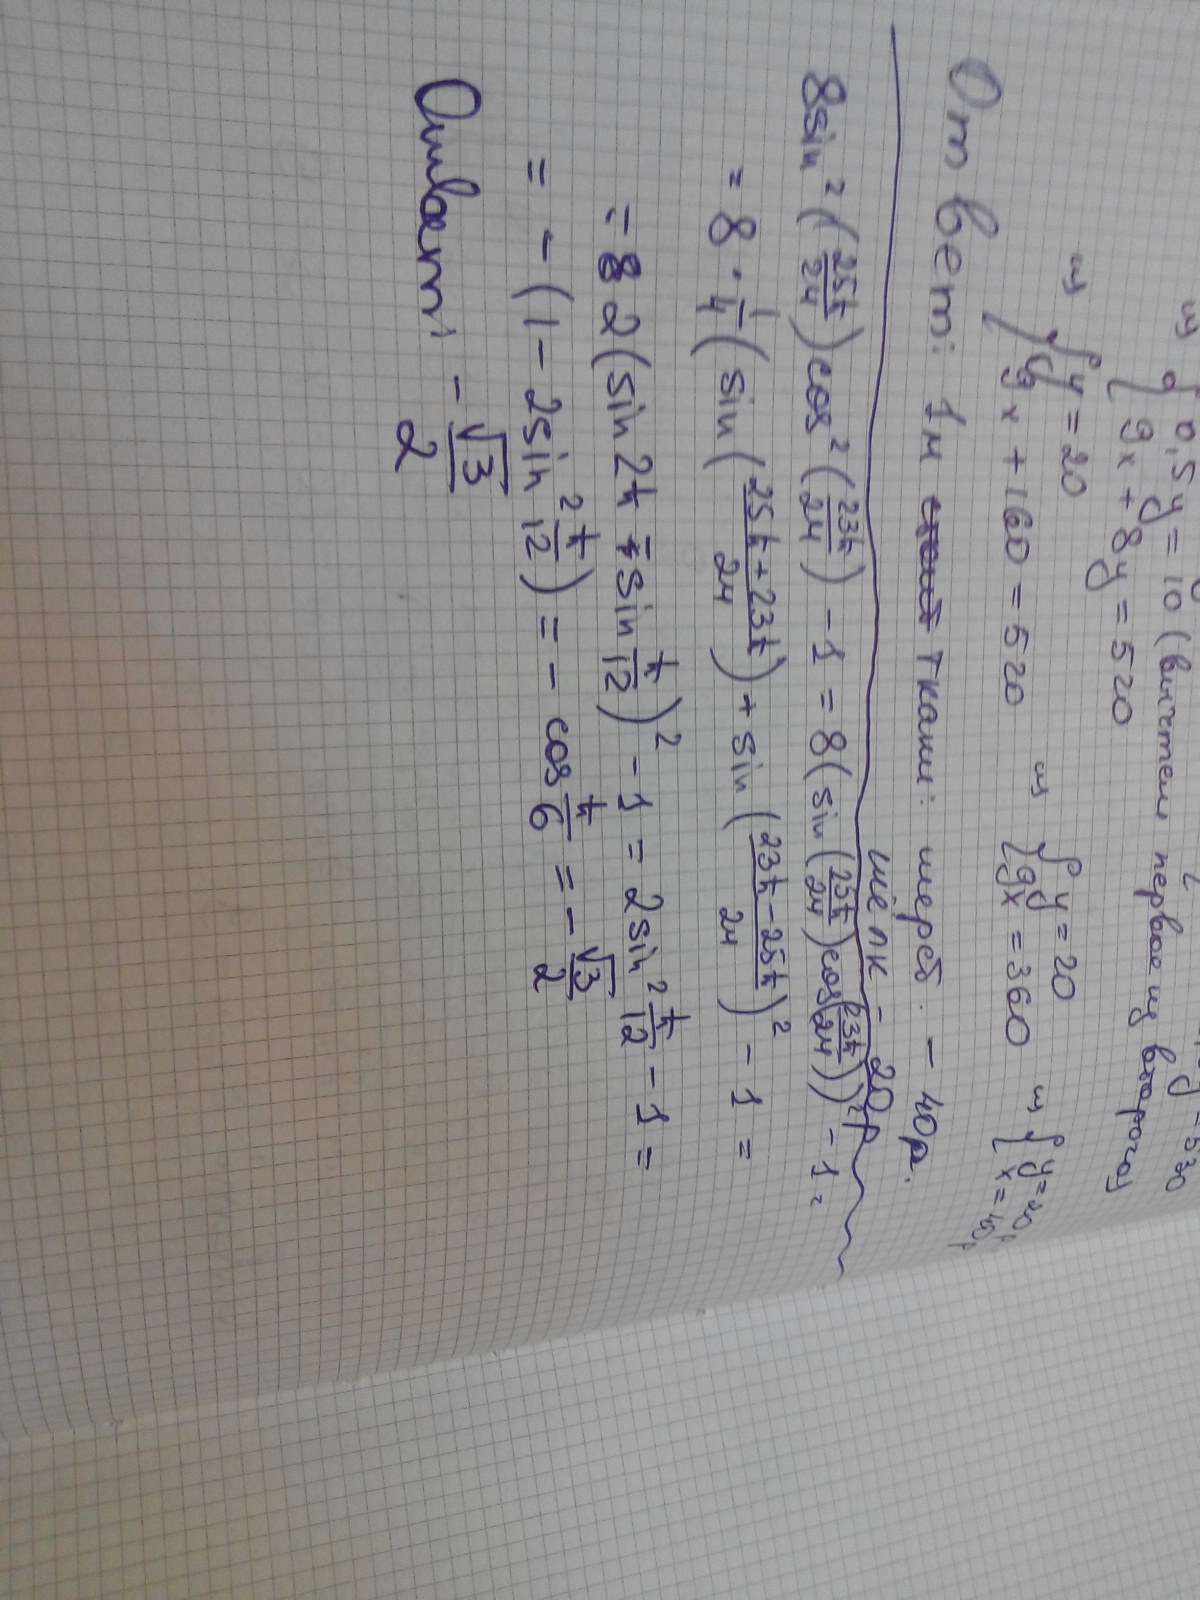 y = 530
{ 0,5y = 10 (вычтем первое из второго)
9x + 8y = 520
{ y = 20
9x + 160 = 520
{ y = 20
9x = 360
{ y = 20р
x = 40р
Ответ: 1м ткани: шерст. – 40р.
шёлк – 20р
8sin²(25π/24)cos²(23π/24) – 1 = 8(sin(25π/24)cos(23π/24))² – 1 =
= 8 · 1/4 (sin((25π+23π)/24) + sin((23π–25π)/24))² – 1 =
= 2(sin 2π – sin π/12)² – 1 = 2sin² π/12 – 1 =
= – (1 – 2sin² π/12) = – cos π/6 = – √3/2
Ответ: – √3/2